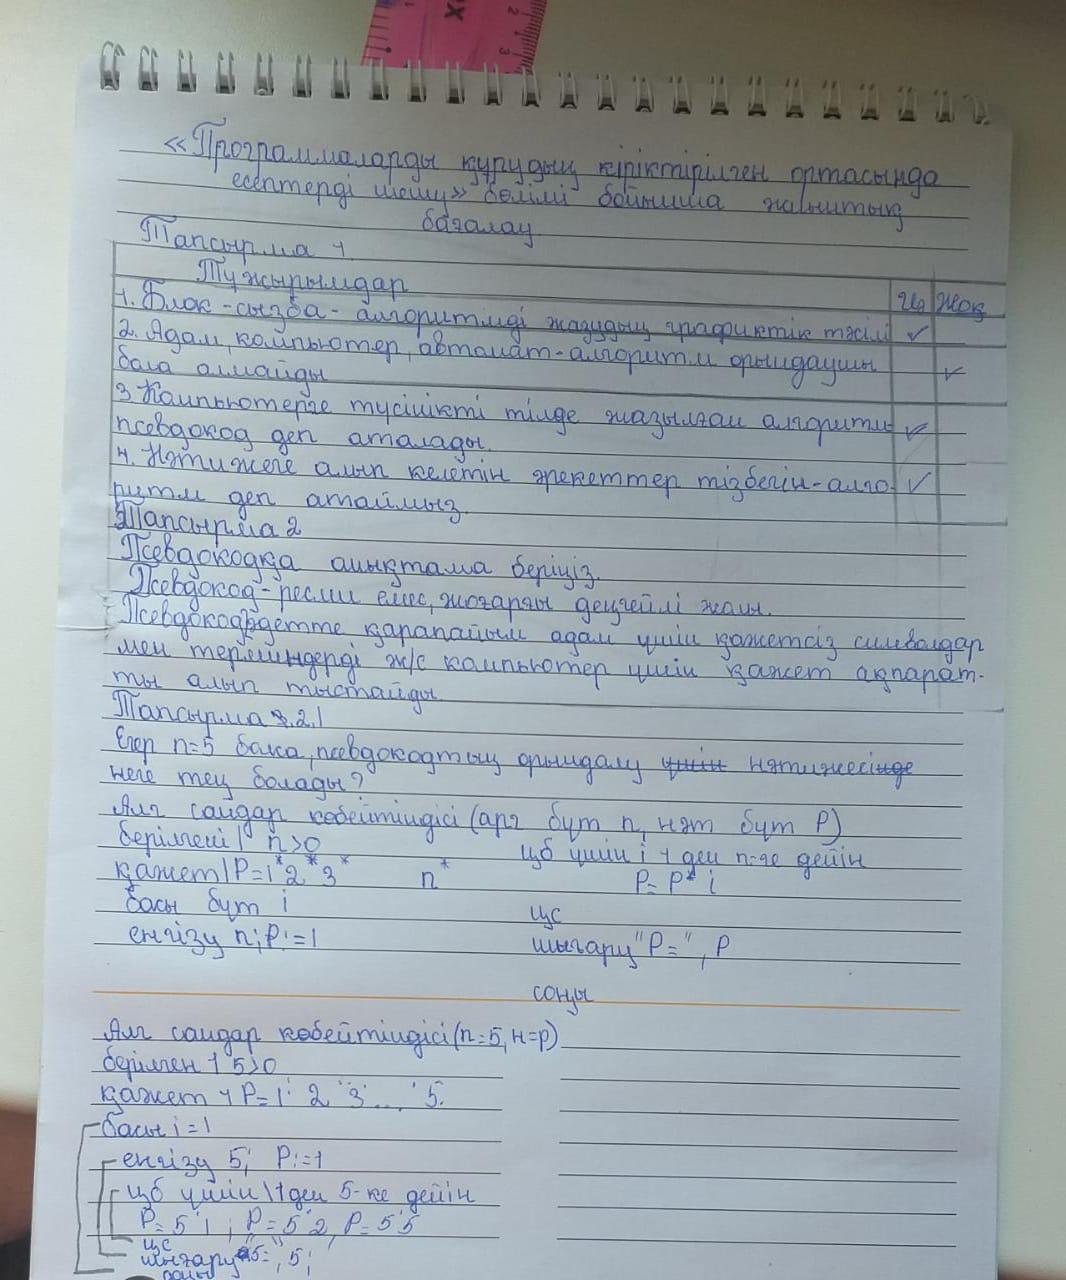 «Программаларды құрудың кіріктірілген ортасында
есептерді шешу» бөлімі бойынша жиынтық
бағалау
Тапсырма 1.
Тұжырымдар Иә Жоқ
1. Блок-сызба - алгоритмді жазудың графиктік тәсілі ✓
2. Адам, компьютер, автомат-алгоритм орындаушы
бола алмайды ✓
3 Компьютерге түсінікті тілде жазылған алгоритм
псевдокод деп аталады. ✓
4. Нәтижеге алып келетін әрекеттер тізбегін-алго- ✓
ритм деп атаймыз.
Тапсырма 2
Псевдокодқа анықтама беріңіз.
Псевдокод-ресми емес, жоғарғы деңгейлі жаш.
Псевдокод әдетте қарапайым адам үшін қажетсіз символдар
мен терминдерді ж/с компьютер үшін қажет ақпарат-
ты алып тыстайды
Тапсырма 2.1
Егер n=5 болса, псевдокодтың орындалу үшін нәтижесінде
неге тең болады?
Алг сандар көбейтіндісі (арг бүт n, нәт бүт P)
берілгені | n>0 цб үшін i 1 ден n-ге дейін
қажет | P=1*2*3* n* P= P* i
басы бүт i цс
енгізу n; P:=1 шығару "P=", P
соңы
Алг сандар көбейтіндісі (n=5, н=p)
берілген 1 5>0
қажет 1 P=1· 2 ·3· ... ·5.
басы i=1
енгізу 5; P:=1
цб үшін \1 ден 5-ке дейін
P=5·1; P=5·2, P=5·5
цс
шығару "5=", 5;
соңы